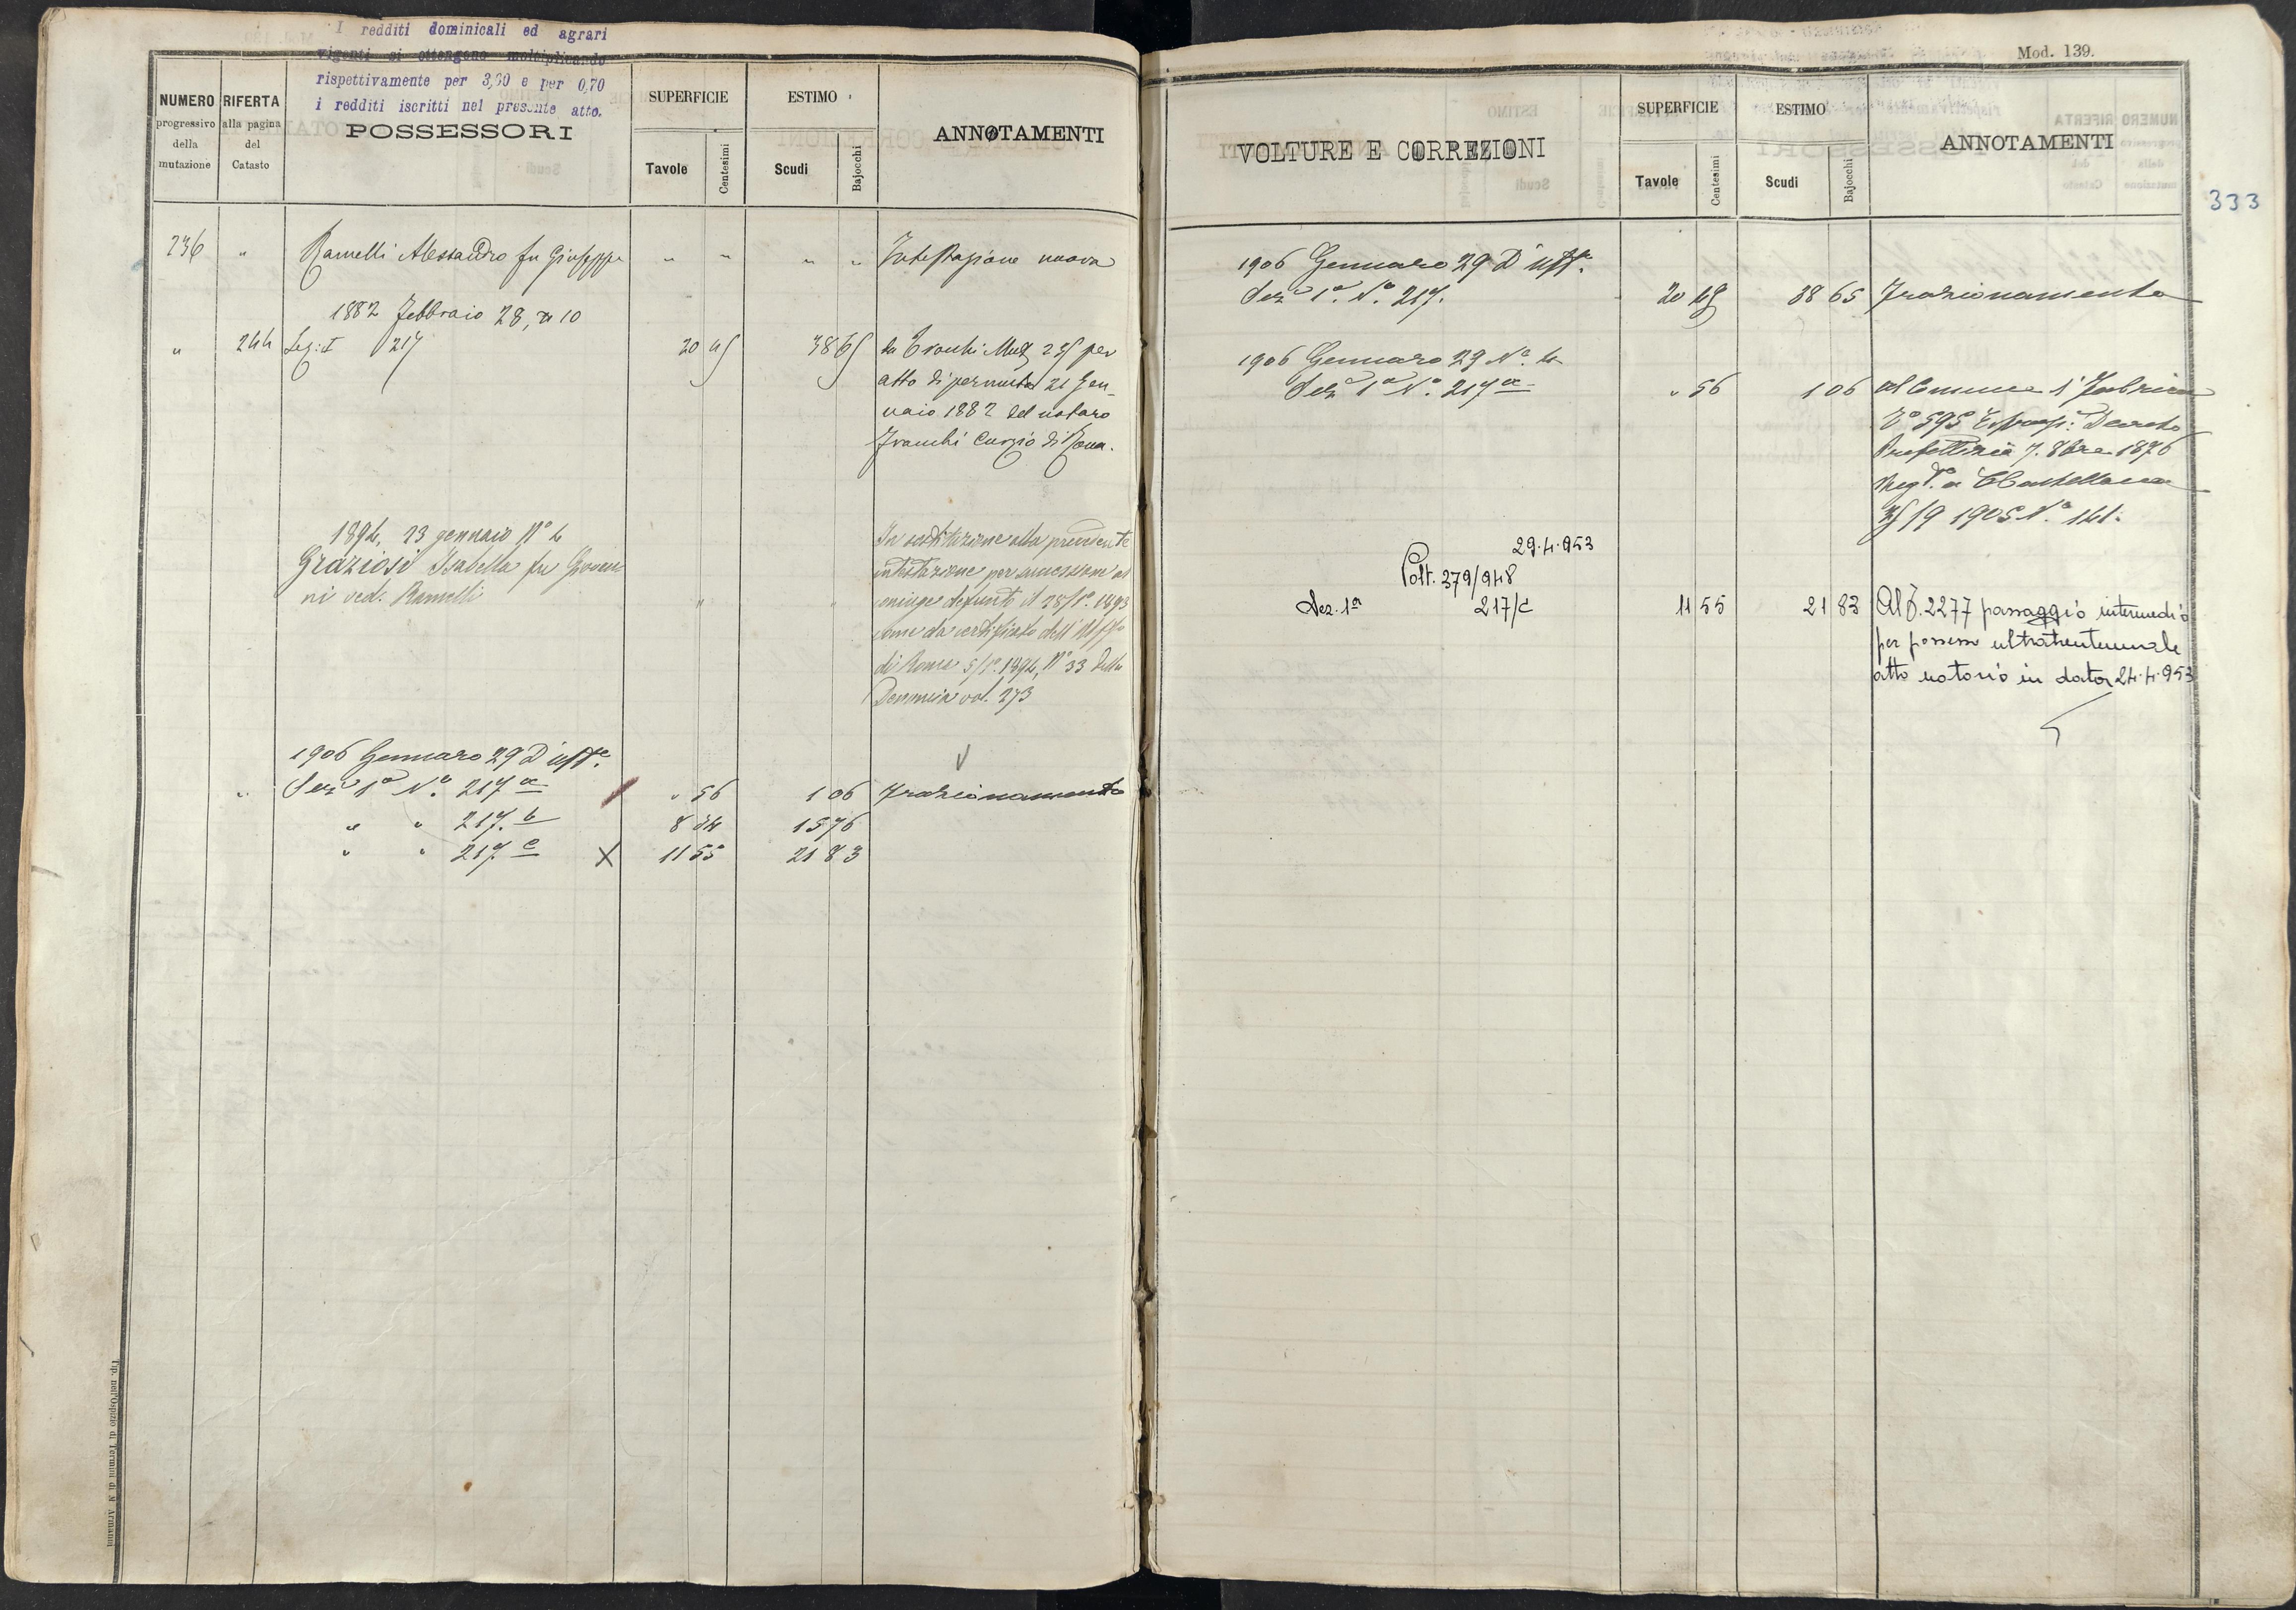 I redditi dominicali ed agrari
vigenti si ottengono moltiplicando
rispettivamente per 3,60 e per 0,70
i redditi iscritti nel presente atto.
NUMERO progressivo della mutazione
RIFERTA alla pagina del Catasto
POSSESSORI
SUPERFICIE
Tavole Centesimi
ESTIMO
Scudi Bajocchi
ANNOTAMENTI
236 " Ramelli Alessandro fu Giuseppe " " " " Intestazione nuova
1882 Febbraio 28, n 10
" 244 Sez: I 217 20 45 38 65 da Franchi Mut 235 per
atto di permuta 21 Gen-
naio 1882 del notaro
Franchi Curzio di Roma.
1894, 23 gennaio N° 4
Graziosi Isabella fu Giovan
ni ved. Ramelli " "
In sostituzione alla precedente
intestazione per successione al
coniuge defunto il 28/ 1893
come da certificato dell'
di Roma 1894, N° 33 della
Denuncia vol. 273
1906 Gennaro 29 D'uff°.
" Sez 1a N° 217 a " 56 1 06 Frazionamento
" " 217. b 8 34 15 76
" " 217 c X 11 55 21 83
Tip. nell'Ospizio di Termini di N. Armanni
Mod. 139.
333
VOLTURE E CORREZIONI
SUPERFICIE
Tavole Centesimi
ESTIMO
Scudi Bajocchi
ANNOTAMENTI
1906 Gennaro 29 D'uff°.
Sez 1a N° 217. 20 45 38 65 Frazionamento
1906 Gennaro 29 N° 4
Sez 1a N° 217 a " 56 1 06 al Comune
N° 595 Esprop: Decreto
Prefettizio 7. 8bre 1876
Reg° a Castellana
19 1905 N° 141.
29.4.953
Volt. 279/948
Sez. 1a 217/c 11 55 21 83 Al P. 2277 passaggio intermedio
per possesso ultratrentennale
atto notorio in data 24.4.953